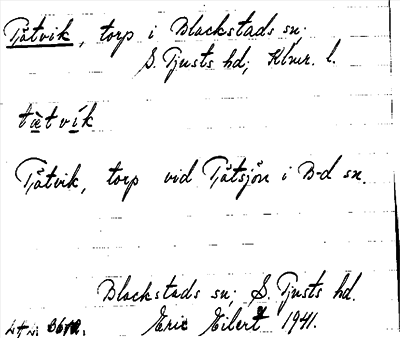 Tjåtvik, torp i Blackstads sn;
S. Tjusts hd; Klmr. l.
tɛ̀tvík
Tjåtvik, torp vid Tjåtsjön i B-d sn.
Blackstads sn; S. Tjusts hd.
Eric Eilert 1941.